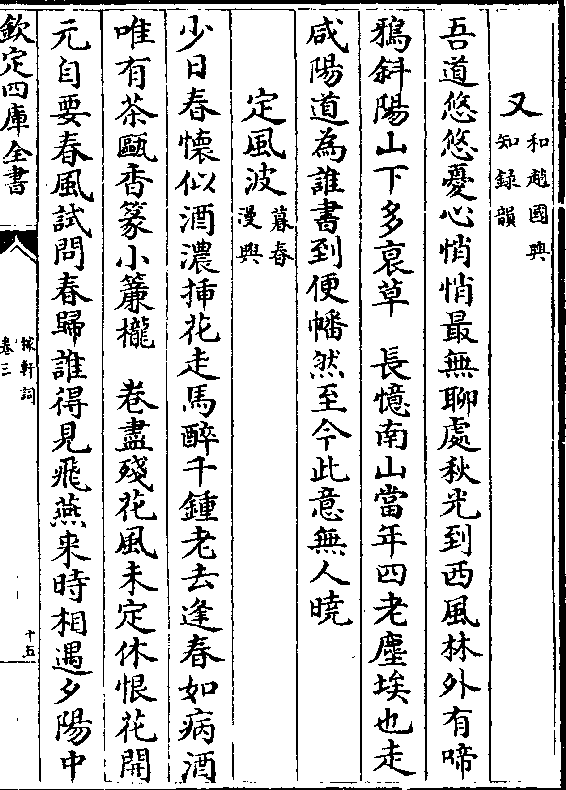 又和趙國興
知録韻
吾道悠悠憂心悄悄最無聊處秋光到西風林外有啼
鴉斜陽山下多衰草　長憶南山當年四老塵埃也走
咸陽道為誰書到便幡然至今此意無人曉
定風波暮春
漫興
少日春懷似酒濃挿花走馬醉千鍾老去逢春如病酒
唯有茶甌香篆小簾櫳　卷盡殘花風未定休恨花開
元自要春風試問春歸誰得見飛燕来時相遇夕陽中
欽定四庫全書
稼軒詞
卷三
十五